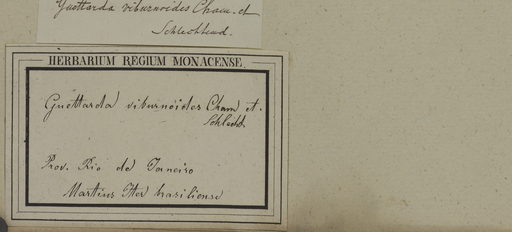 Guettarda viburnoides Cham. et
Schlechtend.
HERBARIUM REGIUM MONACENSE.
Guettarda viburnoides Cham et.
Schlechd.
Prov. Rio de Janeiro
Martius Iter brasiliense